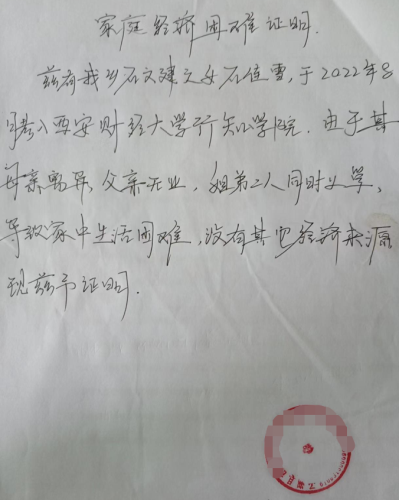 家庭经济困难证明.
兹有我乡石文建之女石值雪,于2022年8
月考入西安财经大学行知学院.由于其
母亲离异,父亲无业,姐弟二人同时上学,
导致家中生活困难,没有其它经济来源
现兹予证明.